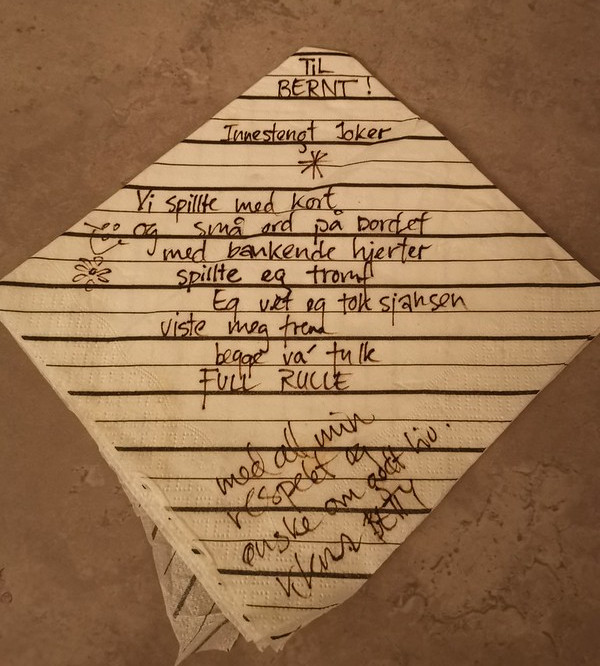 TiL
BERNT!
Innestengt Joker
Vi spillte med kort
og små ord på bordet
med bankende hjerter
spillte eg tromf
Eg vet eg tok sjansen
viste meg frem
begge va' fulle
FULL RULLE
med all min
respekt og
ønske om godt liv.
BETTY